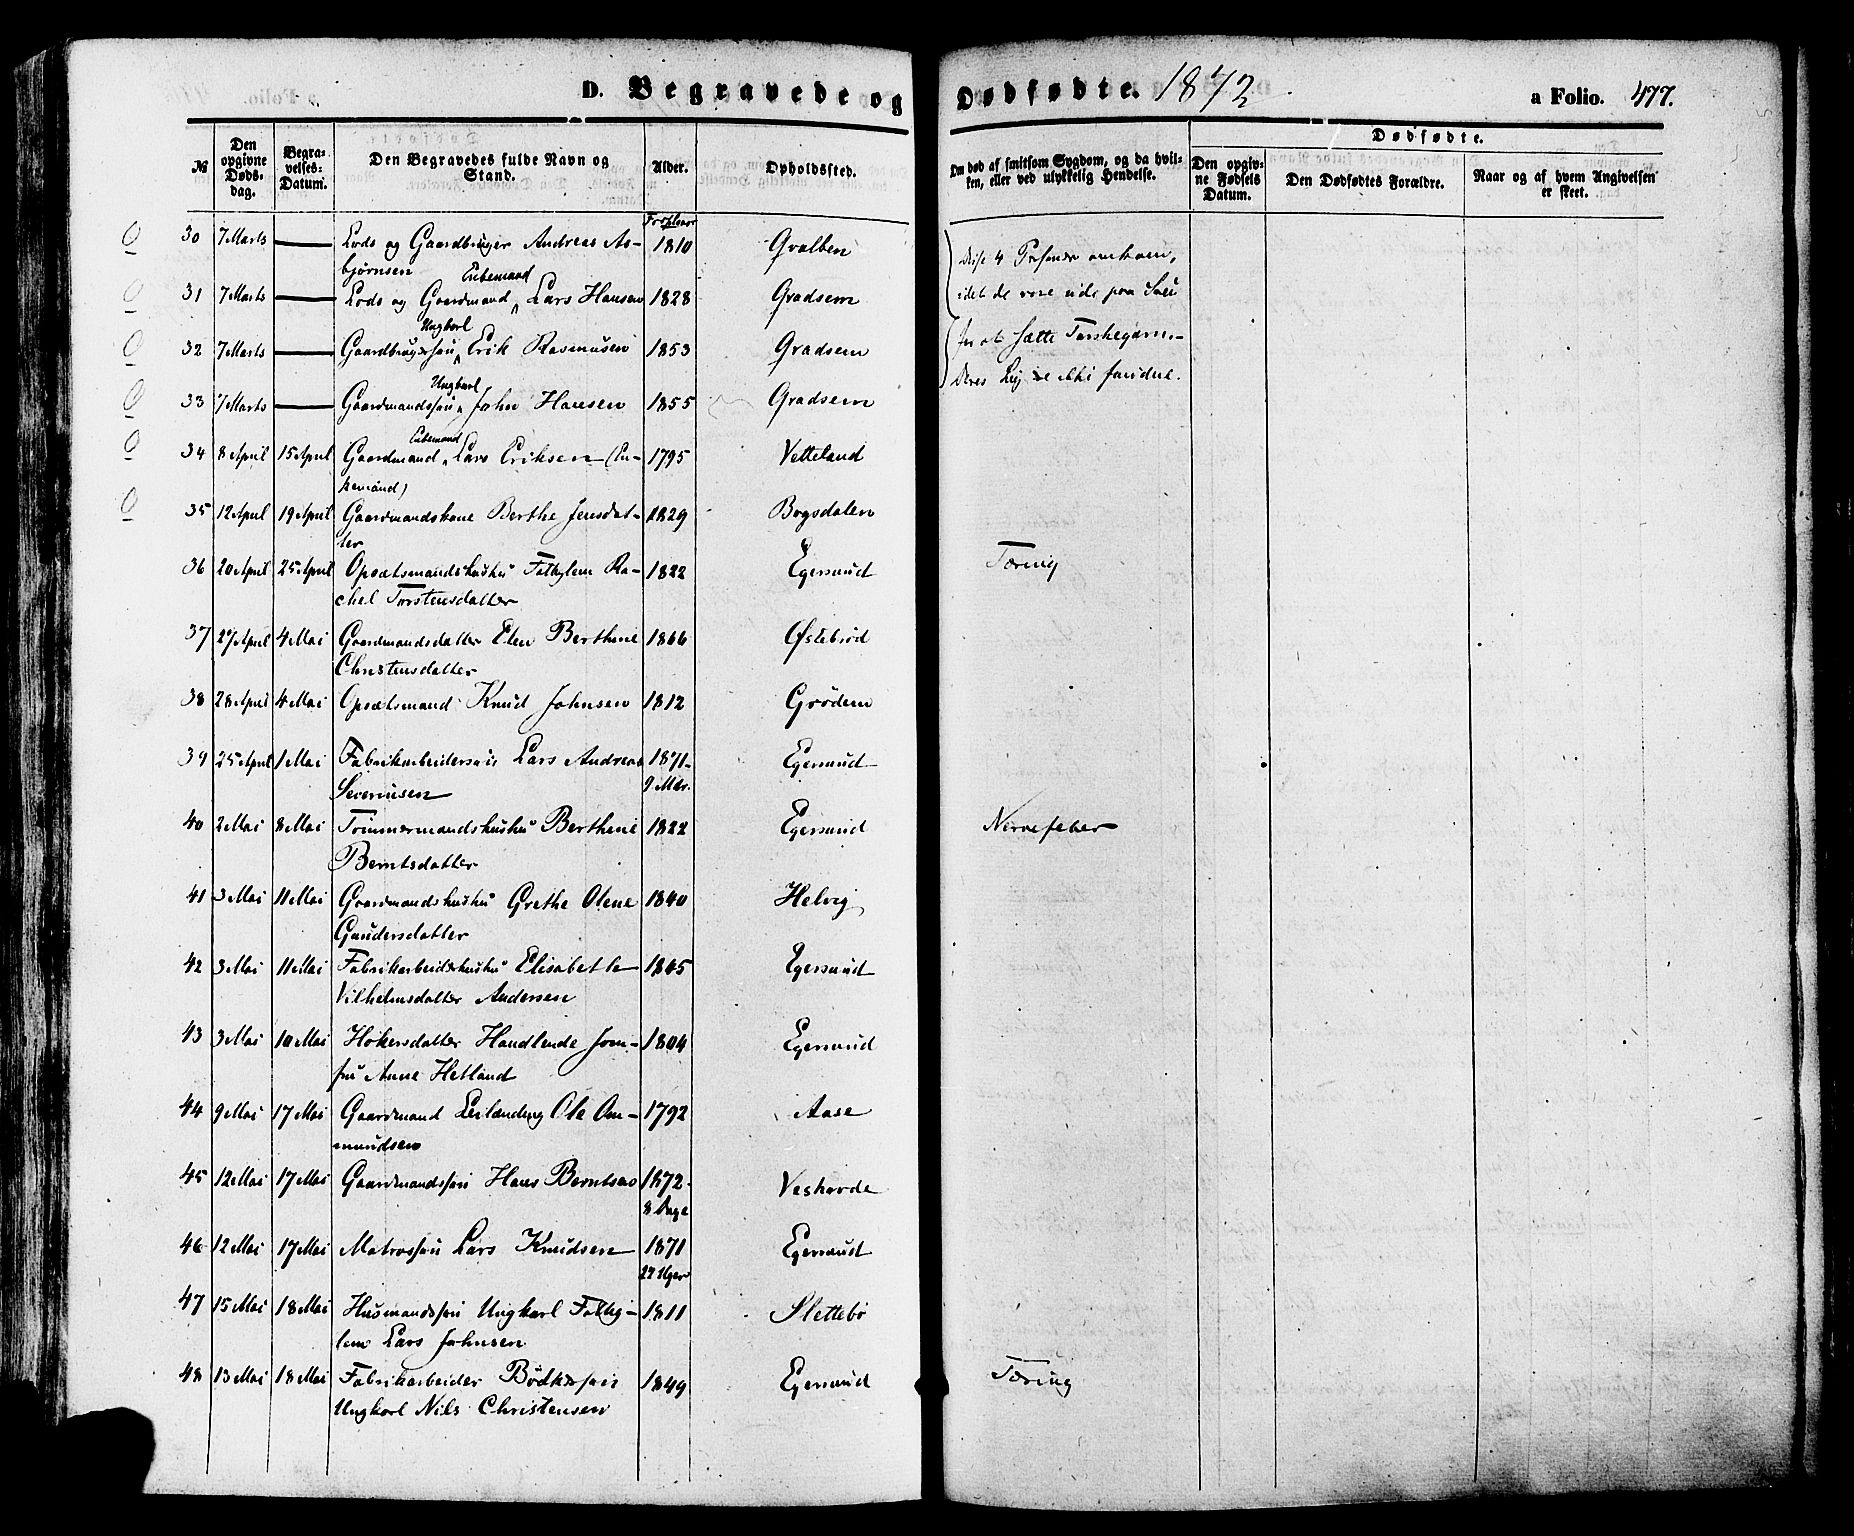 D. Begravede og Dødfødte. 1872. a Folio. 477.
№ Den opgivne Døds-dag. Begra-velses-Datum. Den Begravedes fulde Navn og Stand. Alder. Opholdssted. Om død af smitsom Sygdom, og da hvil-ken, eller ved ulykkelig Hendelse. Dødfødte.
Den opgiv-ne Fødsels Datum. Den Dødfødtes Forældre. Naar og af hvem Angivelsen er skeet.
30 7 Marts — Lods og Gaardbruger Andreas As- 1810 Gralben
bjørnsen
Disse 4 Personer omkom,
Enkemand
31 7 Marts — Lods og Gaardmand Lars Hansen 1828 Gradsem
idet de vare ude paa Søen
Ungkarl
32 7 Marts — Gaardbrugersøn Erik Rasmusen 1853 Gradsem
for at sætte Torskegarn.
Ungkarl
33 7 Marts — Gaardmandssøn John Hansen 1855 Gradsem
Deres Lig ere ikke fundne.
Enkemand
34 8 April 15 April Gaardmand Lars Eriksen (En- 1795 Vetteland
kemand)
35 12 April 19 April Gaardmandskone Berthe Jensdat- 1829 Bogsdalen
ter
36 20 April 25 April Opsætsmandshustru Fattiglem Ra- 1822 Egersund Tæring
chel Torstensdatter
37 27 April 4 Mai Gaardmandsdatter Elen Berthine 1866 Østebrød
Christensdatter
38 28 April 4 Mai Opsætsmand Knud Johnsen 1812 Grødem
39 25 April 1 Mai Fabrikarbeidersøn Lars Andreas 1871 Egersund
Severinsen 9 Mdr.
40 2 Mai 8 Mai Tømmermandshustru Berthine 1822 Egersund Nervefeber
Berntsdatter
41 3 Mai 11 Mai Gaardmandshustru Grethe Olene 1840 Helvig
Gaudersdatter
42 3 Mai 11 Mai Fabrikarbeiderhustru Elisabeth 1845 Egersund
Vilhelmsdatter Andersen
43 3 Mai 10 Mai Høkersdatter Handlende Jom- 1804 Egersund
fru Anne Hetland
44 9 Mai 17 Mai Gaardmand Leilænding Ole Om- 1792 Aase
mundsen
45 12 Mai 17 Mai Gaardmandssøn Hans Berntsen 1872 Veshovde
8 Dage
46 12 Mai 17 Mai Matrossøn Lars Knudsen 1871 Egersund
27 Uger
47 15 Mai 18 Mai Husmandssøn Ungkarl Fattig- 1811 Slettebø
lem Lars Johnsen
48 13 Mai 18 Mai Fabrikarbeider Bødkersøn 1849 Egersund Tæring
Ungkarl Nils Christensen